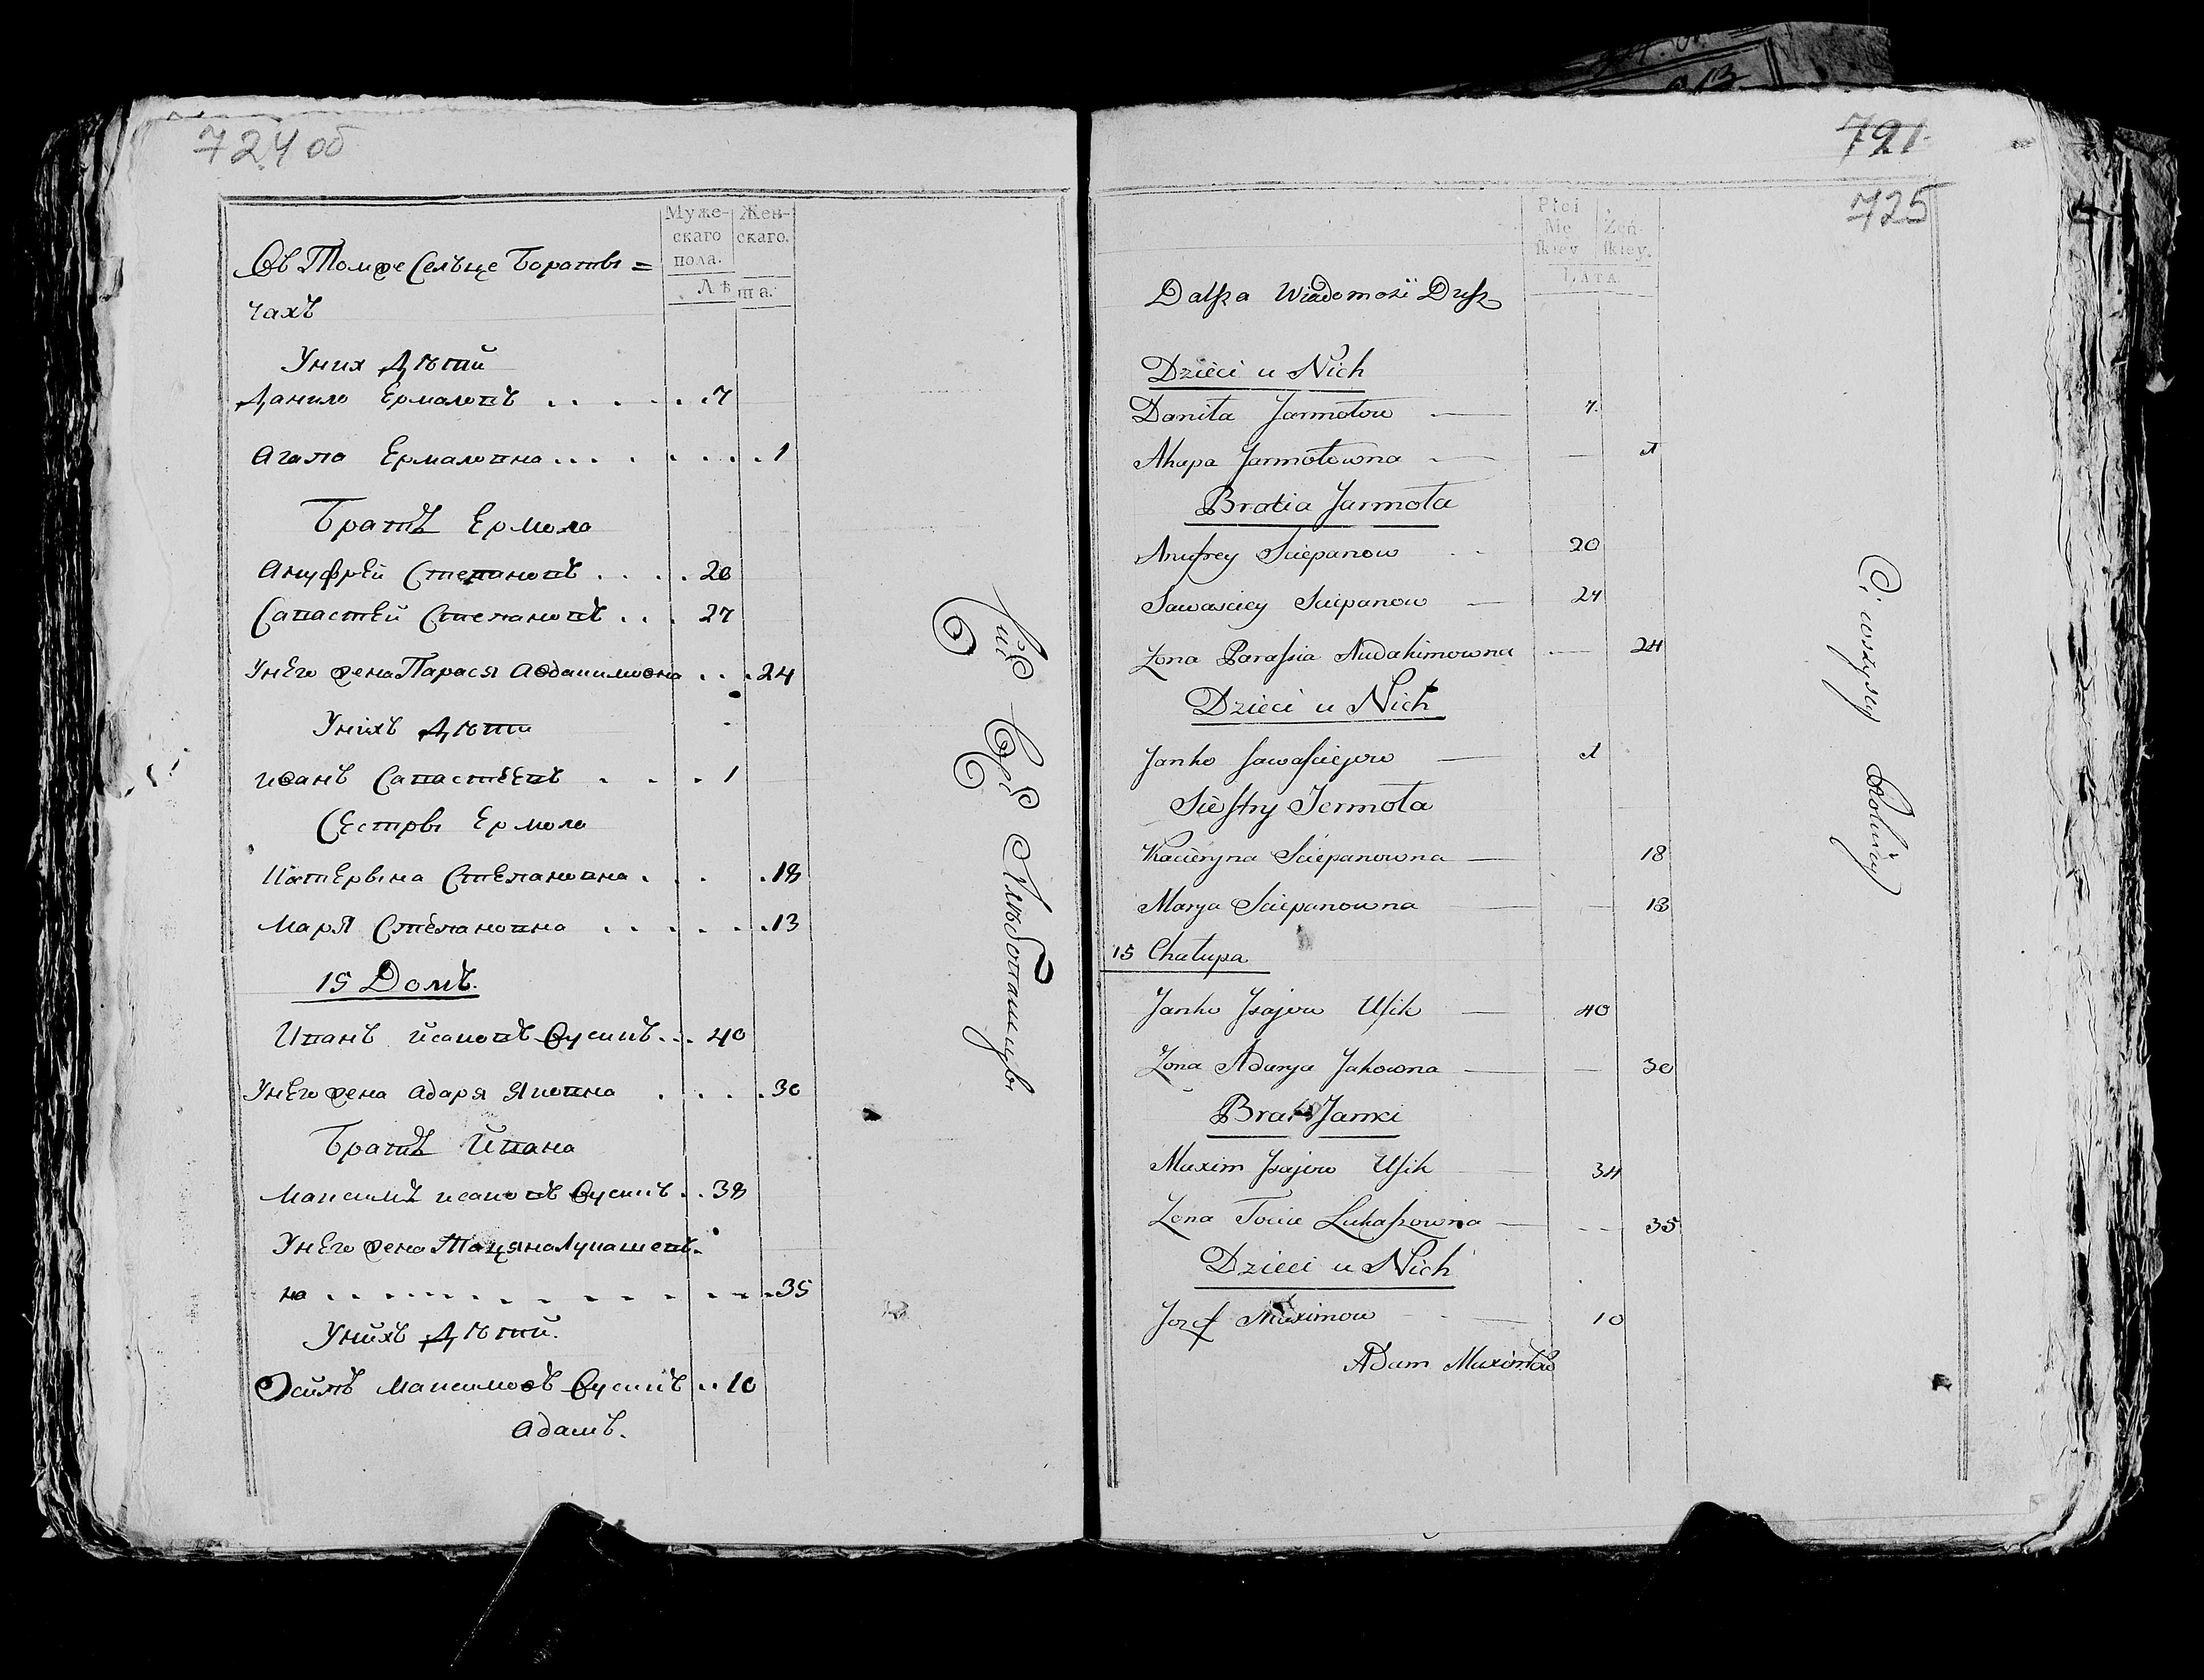 724 об
Муже-
скаго
пола.
Жен-
скаго.
Лѣта.
Въ Томже Сельце Бораты=
чахъ
Уних Дѣтий
Данило Ермоловъ . . . . . . 7
Агапа Ермаловна . . . . . . . . 1
Братъ Ермола
Ануфрей Степановъ . . . . . 20
Савастей Степановъ . . . 27
Унего жена Парася Авдакимовна . . . 24
Унихъ Дѣти
Иванъ Савастеевъ . . . . 1
Сестры Ермола
Катерына Степановна . . . . 18
Маря Степановна . . . . . . . 13
15 Домъ.
Иванъ Исаковъ Вусикъ . . . 40
Унего жена Адаря Яковна . . . . 30
Братъ Ивана
Максимъ Исаковъ Вусикъ . . 38
Унего жена Тацяна Лукашев-
на . . . . . . . . . . . . . . 35
Унихъ Дѣтий.
Осипъ Максимовъ Вусикъ . . 10
Адамъ.
Сии Все
721
725
Płci
Mę
ſkiey
Żeń-
ſkiey.
LATA.
Dalſza Wiadomość Duſz
Dzieci u Nich
Daniła Jarmołow — 7.
Ahapa Jarmołowna — — 1
Bracia Jarmoła
Anufrey Sciepanow . . 20
Sawasciey Sciepanow — 27
Zona Paraſsia Audakimowna — 24
Dzieci u Nich
Janko Sawaſciejow — 1
Sieſtry Jermoła
Kacieryna Sciepanowna — 18
Marya Sciepanowna — — 13
15 Chałupa
Janko Jsajow Uſik — 40
Zona Adarya Jakowna — — 30
Brat Janki
Maxim Jsajow Uſik — 34
Zona Tacia Lukaſzowna — - - 35
Dzieci u Nich
Jozef Maximow — 10
Adam Maximow
Ci wszyscy